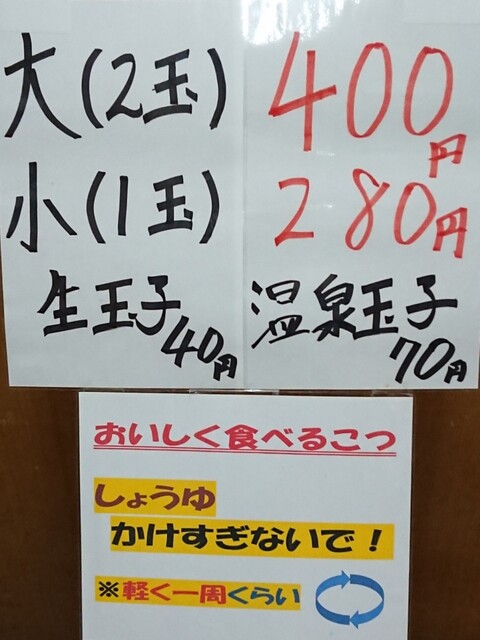 大(2玉) 400円
小(1玉) 280円
生玉子40円 温泉玉子70円
おいしく食べるこつ
しょうゆ
かけすぎないで！
※軽く一周くらい